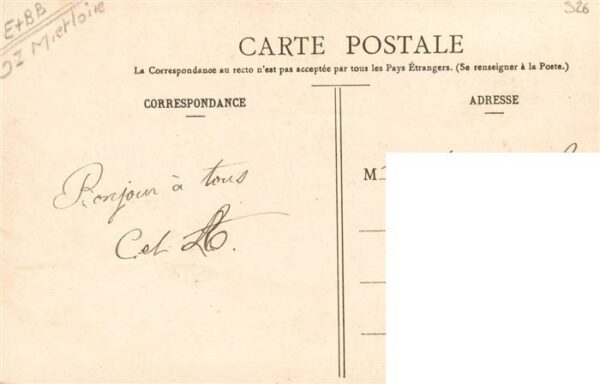 E+BB
S26
CARTE POSTALE
La Correspondance au recto n'est pas acceptée par tous les Pays Étrangers. (Se renseigner à la Poste.)
CORRESPONDANCE
ADRESSE
Bonjour à tous
M